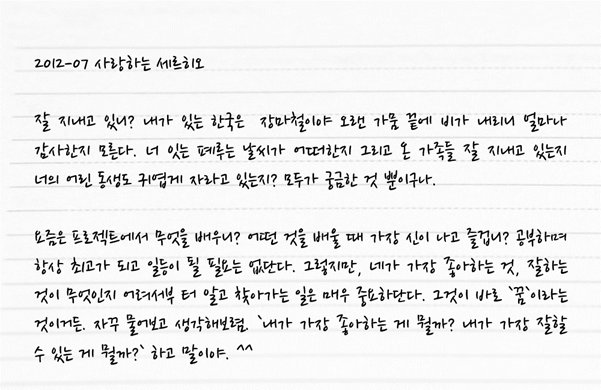 2012-07 사랑하는 세르히오
잘 지내고 있니? 내가 있는 한국은 장마철이야 오랜 가뭄 끝에 비가 내리니 얼마나
감사한지 모른다. 너 잇는 페루는 날씨가 어떠한지 그리고 온 가족들 잘 지내고 있는지
너의 어린 동생도 귀엽게 자라고 있는지? 모두가 궁금한 것 뿐이구나.
요즘은 프로젝트에서 무엇을 배우니? 어떤 것을 배울 때 가장 신이 나고 즐겁니? 공부하며
항상 최고가 되고 일등이 될 필요는 없단다. 그렇지만, 네가 가장 좋아하는 것, 잘하는
것이 무엇인지 어려서부 터 알고 찾아가는 일은 매우 중요하단다. 그것이 바로 `꿈`이라는
것이거든. 자꾸 물어보고 생각해보렴. `내가 가장 좋아하는 게 뭘까? 내가 가장 잘할
수 있는 게 뭘까?` 하고 말이야. ^^